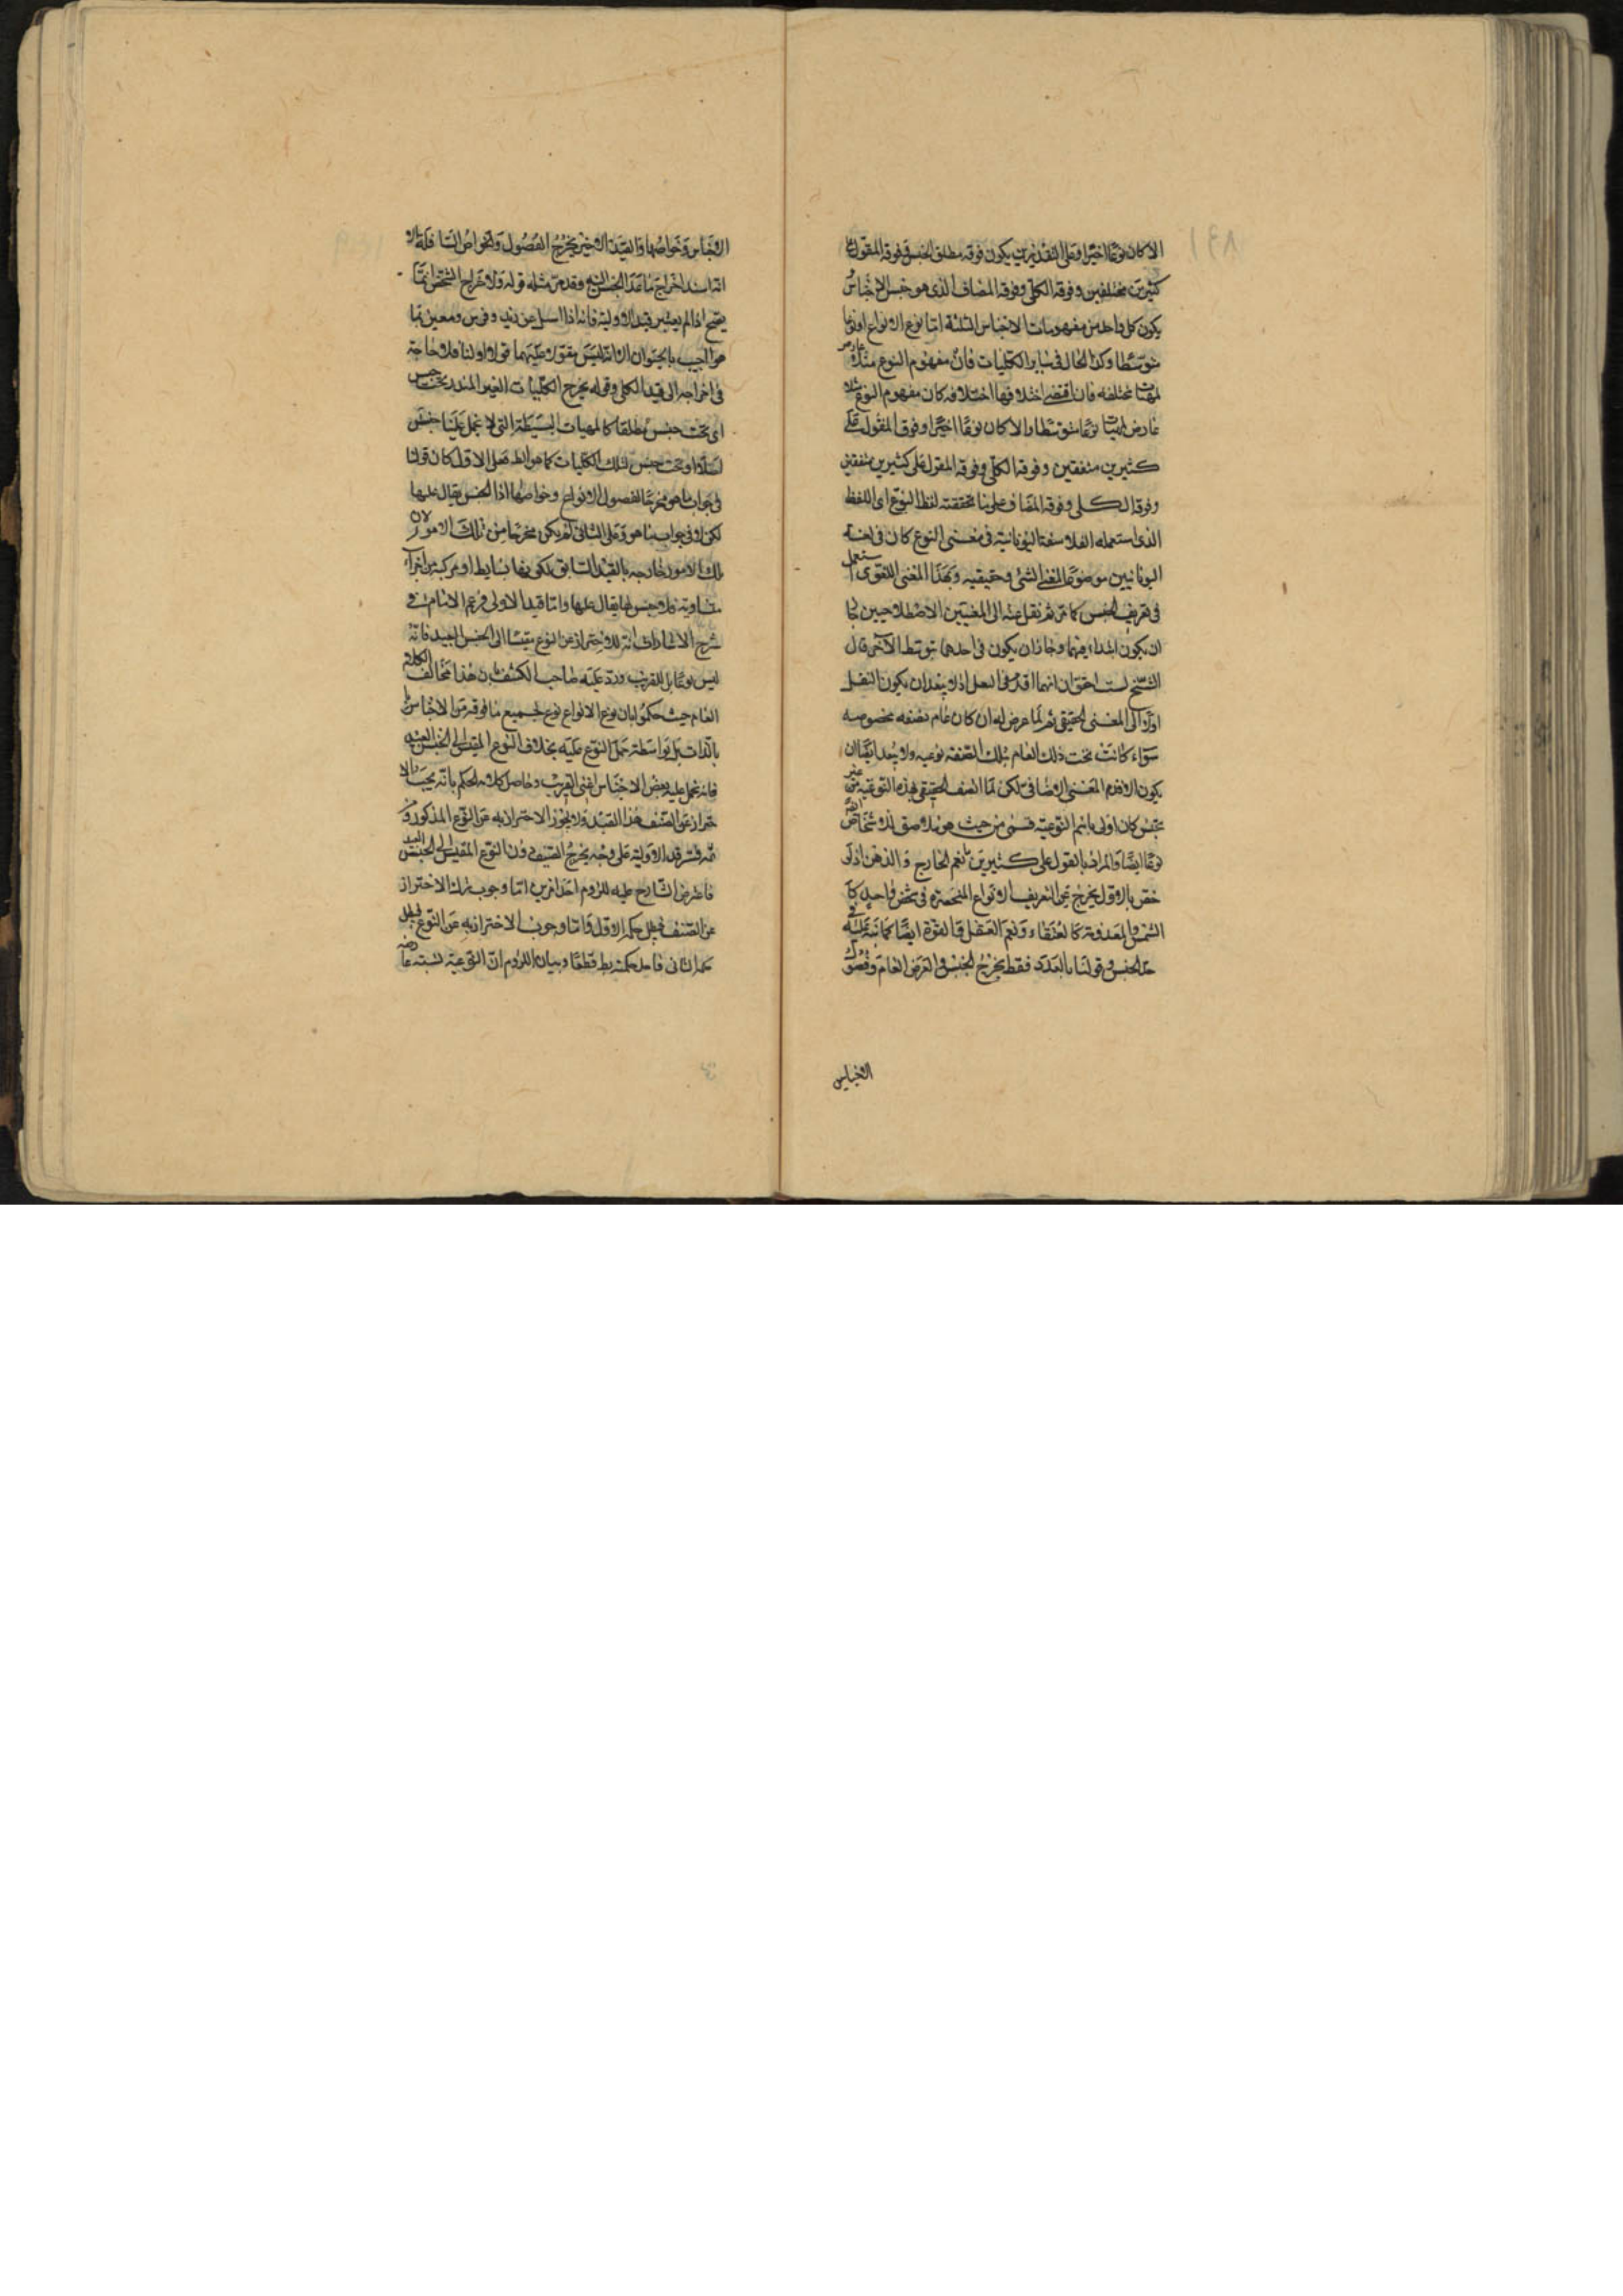 الا كان نوعًا اخيرًا وعلى التقديرين يكون فوقه مطلق الجنس وفوقه المقول على
كثيرين مختلفين وفوقه الكلى وفوقه المضاف الذى هو جنس الاجناس
يكون كل واحد من مفهومات الاجناس الثلثة اما نوع الانواع او نوعا
متوسّطا وكذا الحال فى سائر الكليات فانّ مفهوم النوع مثلا عارض
لمهيات مختلفة فان اقتضى اختلافها اختلافه كان مفهوم النوع مثلا
عارض لمهيات نوعًا متوسّطا والا كان نوعًا اخيرًا وفوقه المقول على
كثيرين متفقين وفوقه الكلى وفوقه المقول على كثيرين متفقين
وفوقه الكلى وفوقه المضاف على ما تحققته لفظ النوع اى اللفظ
الذى استعمله الفلاسفة اليونانية فى معنى النوع كان فى لغة
اليونانيين موضوعًا لمعنى الشئ وحقيقيه وبهذا المعنى اللغوى يستعمل
فى تعريف الجنس كما مرّ ثم نقل عنه الى المعنيين الاصطلاحيين
ان يكون ابتداء فيهما وجاز ان يكون فى احدهما بتوسّط الآخر قال
الشيخ لست احقق ان ايهما اقدم فى النقل اذ لا يبعد ان يكون النقل
اولا الى المعنى الحقيقى ثم لما عرض له ان كان عام بصفة مخصوصه
سواء كانت تحت ذلك العام بتلك الصفة نوعيه ولا يبعد ايضًا ان
يكون الاقدم المعنى الاضافى لكن لما اتصف الحقيقى بهذه النوعية من غير
تجنّس كان اولى باسم النوعيّة فسمى من حيث هو ملاصق للاشخاص
نوعًا ايضًا والمراد بالمقول على كثيرين ما يعم الخارج والذهن اذ لو
خصّ بالاول يخرج عن التعريف الانواع المنحصرة فى شخص واحد كا
الشمس والمعدومة كالعنقاء ونعم الفعل والقوة ايضًا كما نبه عليه فى
حدّ الجنس وقولنا بالعدد فقط يخرج الجنس والعرض العام وفصول
الاجناس
الاجناس وخواصّها والقيد الاخير يخرج الفصول والخواصّ السافلة
انه اسند اخراج ما عدا الجنس اليه وقد مرّ مثله قوله ولاخراج الشخص انما
يصح اذا لم يعتبر قيد الاولية فانه اذا سئل عن زيد وفرس ومعين بما
هو اجيب بالحيوان الا انه ليس مقولا عليهما قولا اوليا فلا حاجة
فى اخراجه الى قيد الكلى وقوله يخرج الكليات الغير المندرجة تحت جنس
اى تحت جنس مطلقا كالمهيات البسيطة التى لا يحمل عليها جنس
اصلا او تحت جنس لتلك الكليات كما هو الظ فعلى الاول كان قولنا
فى جواب ما هو مخرجًا لفصول الانواع وخواصّها اذا الجنس يقال عليها
لكن لا فى جواب ما هو وعلى الثانى لم يكن مخرجا من تلك الامور لان
تلك الامور خارجه بالقيد السابق لكونها بسايط او مركبة من اجزاء
متساوية فلا جنس لها يقال عليها واما قيد الاولى فزعم الامام فى
شرح الاشارات انه للاحتراز عن النوع مقيسًا الى الجنس البعيد فانّه
ليس نوعًا بل للقريب وردّ عليه صاحب الكشف بان هذا مخالف لكلام
العام حيث حكموا بان نوع الانواع نوع لجميع ما فوقه من الاجناس لا
بالذات بل بواسطة حمل النوع عليه بخلاف النوع المقيس الى الجنس البعيد
فانه يحمل عليه بعض الاجناس اعنى القريب وحاصل كلامه الحكم بانّه يجب الا
حتراز عن الصنف بهذا القيد ولا يجوز الاحتراز به عن النوع المذكور
ثمّ فسّر قيد الاولية على وجه يخرج الصنف دون النوع المقيس الى الجنس البعيد
فاعترض الشارح عليه للزوم احد امرين اما وجوب ترك الاحتراز
عن الصنف فبطل حكمه الاول واما وجوب الاحتراز به عن النوع فبطل
حكمه الثانى فاحد حكميه بطـ قطعًا وبيان اللزوم انّ النوعيّة نسبة عارضه